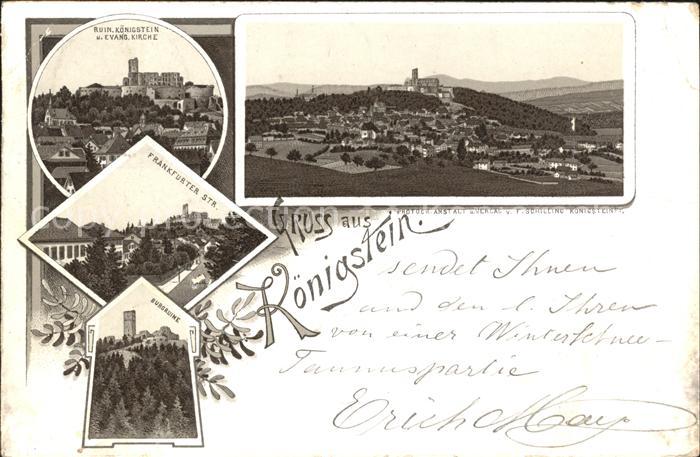 RUIN. KÖNIGSTEIN
u. EVANG. KIRCHE
FRANKFURTER STR.
BURGRUINE
PHOTOGR. ANSTALT u. VERLAG v. F. SCHILLING KÖNIGSTEIN i/T.
Gruss aus
Königstein.
sendet Ihnen
und den l. Ihren
von einer Winterschnee-
Taunuspartie
Erich May